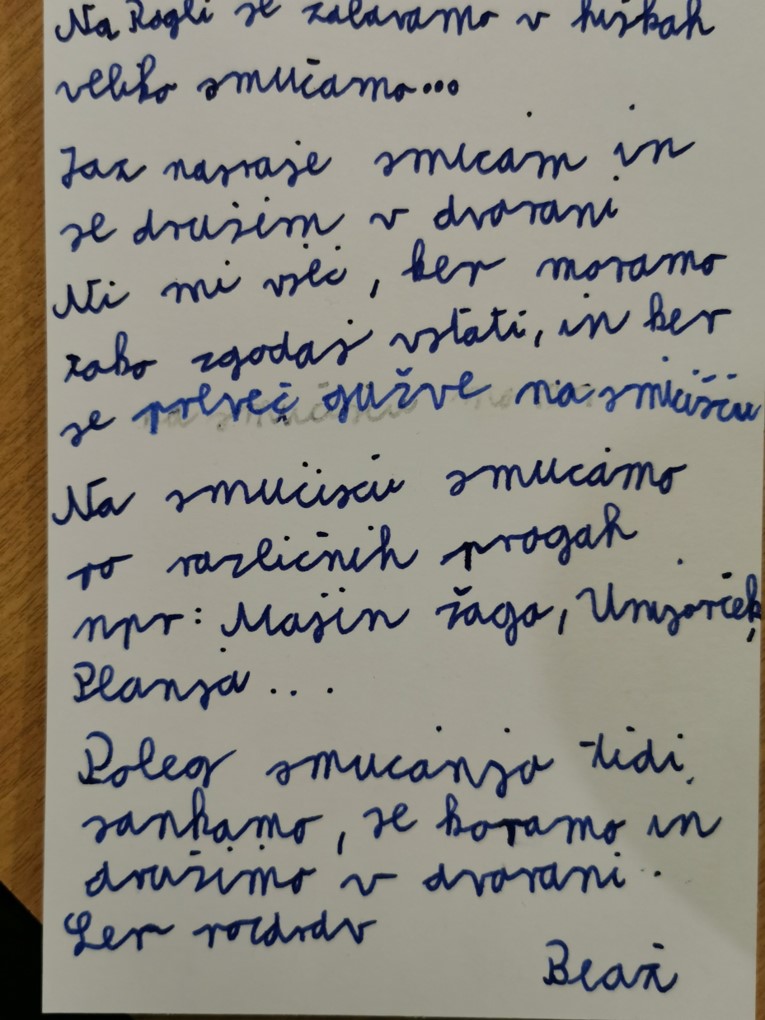 Na Rogli se zabavamo v hiškah
veliko smučamo...
Jaz najraje smučam in
se družim v dvorani
Ni mi všeč, ker moramo
tako zgodaj vstati, in ker
je preveč gužve na smučišču
Na smučišču smučamo
po različnih progah
npr: Mašin žaga, Uniorček,
Planja...
Poleg smučanja tudi
sankamo, se kopamo in
družimo v dvorani.
Lep pozdrav